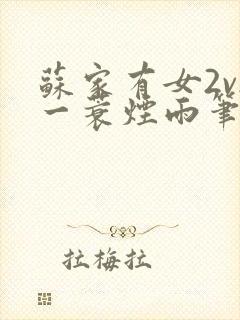 蘇家有女2v
一蓑煙雨筆
拉梅拉